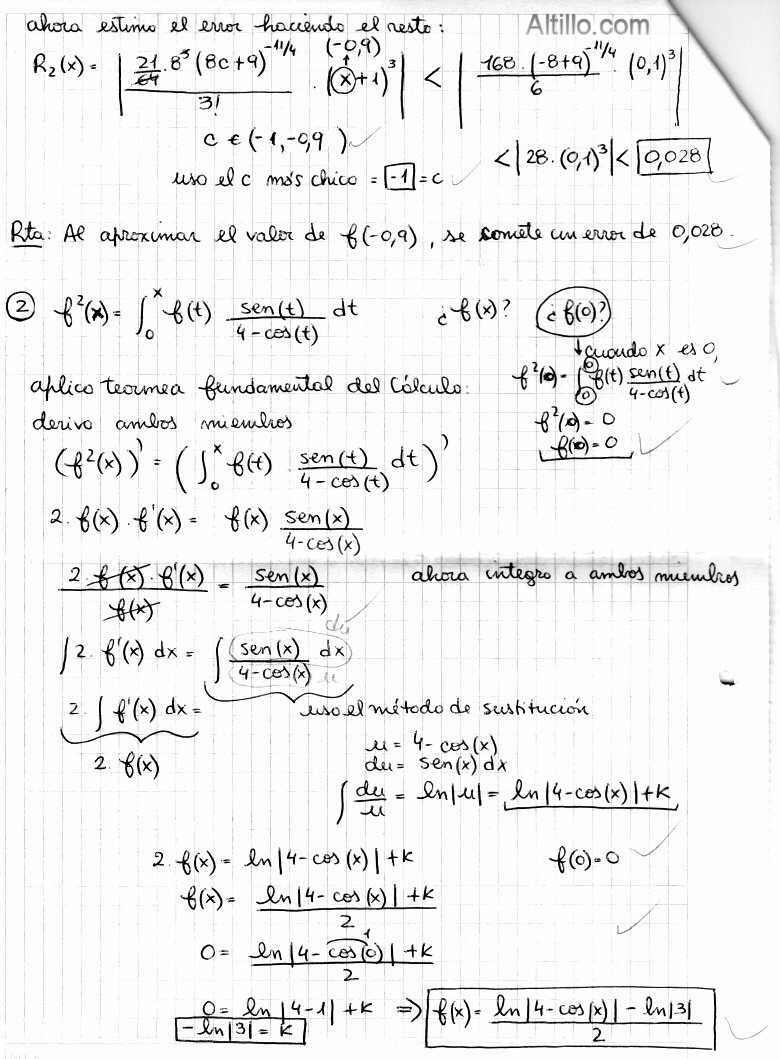 Altillo.com
ahora estimo el error haciendo el resto:
R₂(x) = | 21/64 · 8³ (8c+9)^(-11/4) / 3! · (x+1)³ | < | 168 · (-8+9)^(-11/4) / 6 · (0,1)³ |
(-0,9)
c ∈ (-1, -0,9)
< | 28 · (0,1)³ | < 0,028
uso el c más chico = -1 = c
Rta: Al aproximar el valor de f(-0,9), se comete un error de 0,028.
② f²(x) = ∫₀ˣ f(t) sen(t)/(4-cos(t)) dt ¿f(x)? ¿f(0)?
cuando x es 0,
f²(0) = ∫₀⁰ f(t) sen(t)/(4-cos(t)) dt
f²(0) = 0
f(0) = 0
aplico teormea fundamental del Cálculo:
derivo ambos miembros
(f²(x))' = (∫₀ˣ f(t) · sen(t)/(4-cos(t)) dt)'
2. f(x) · f'(x) = f(x) sen(x)/(4-cos(x))
2 · f(x) · f'(x) / f(x) = sen(x)/(4-cos(x)) ahora integro a ambos miembros
du
∫ 2. f'(x) dx = ∫ sen(x)/(4-cos(x)) dx
u
2. ∫ f'(x) dx = uso el método de sustitución
2. f(x)
u = 4-cos(x)
du = sen(x) dx
∫ du/u = ln|u| = ln|4-cos(x)| + k
2. f(x) = ln|4-cos(x)| + k f(0)=0
f(x) = (ln|4-cos(x)| + k)/2
1
0 = (ln|4-cos(0)| + k)/2
0 = ln|4-1| + k ⇒ f(x) = (ln|4-cos(x)| - ln|3|)/2
-ln|3| = k